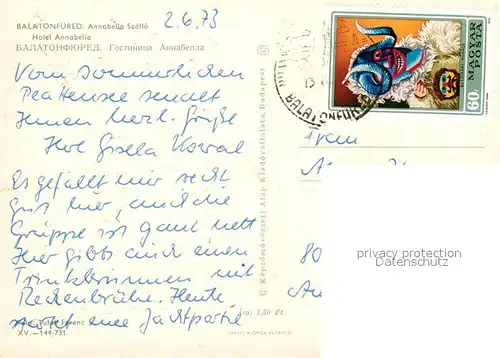 BALATONFÜRED. Annabella Szálló
Hotel Annabella
БАЛАТОНФЮРЕД. Гостиница Аннабелла
2.6.73
Vom sommerlichen
Plattensee sendet
Ihnen herzl. Grüße
Ihre Gisela
Es gefällt mir recht
gut hier, und die
Gruppe ist ganz nett
Hier gibts auch einen
Trinkbrunnen mit
Heute
eine Jachtpartie
Ferenc
XV.–144/731.
Ára: 1,50 Ft
C. Képzőművészeti Alap Kiadóvállalata, Budapest
MAGYAR
POSTA
60
BALATONFÜRED
Frau
80
privacy protection
Datenschutz